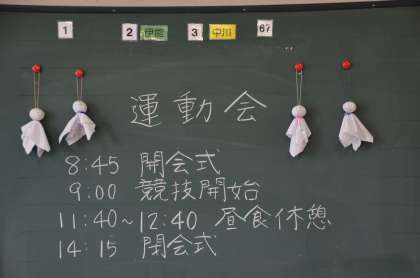 1 2 伊能 3 中川 67
運動会
8:45 開会式
9:00 競技開始
11:40~12:40 昼食休憩
14:15 閉会式